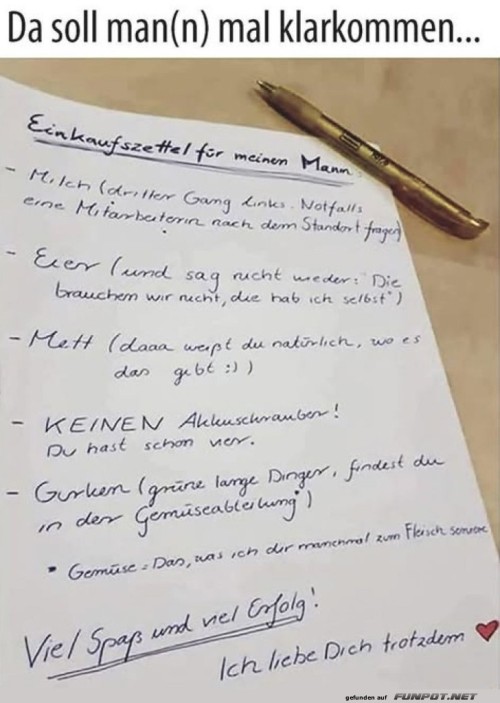 Da soll man(n) mal klarkommen...
Einkaufszettel für meinen Mann
- Milch (dritter Gang links. Notfalls
eine Mitarbeiterin nach dem Standort fragen)
- Eier (und sag nicht wieder: "Die
brauchen wir nicht, die hab ich selbst")
- Mett (daaa weißt du natürlich, wo es
das gibt :) )
- KEINEN Akkuschrauber!
Du hast schon vier.
- Gurken (grüne lange Dinger, findest du
in der Gemüseabteilung*)
* Gemüse = Das, was ich dir manchmal zum Fleisch serviere
Viel Spaß und viel Erfolg!
Ich liebe Dich trotzdem ❤
gefunden auf FUNPOT.NET